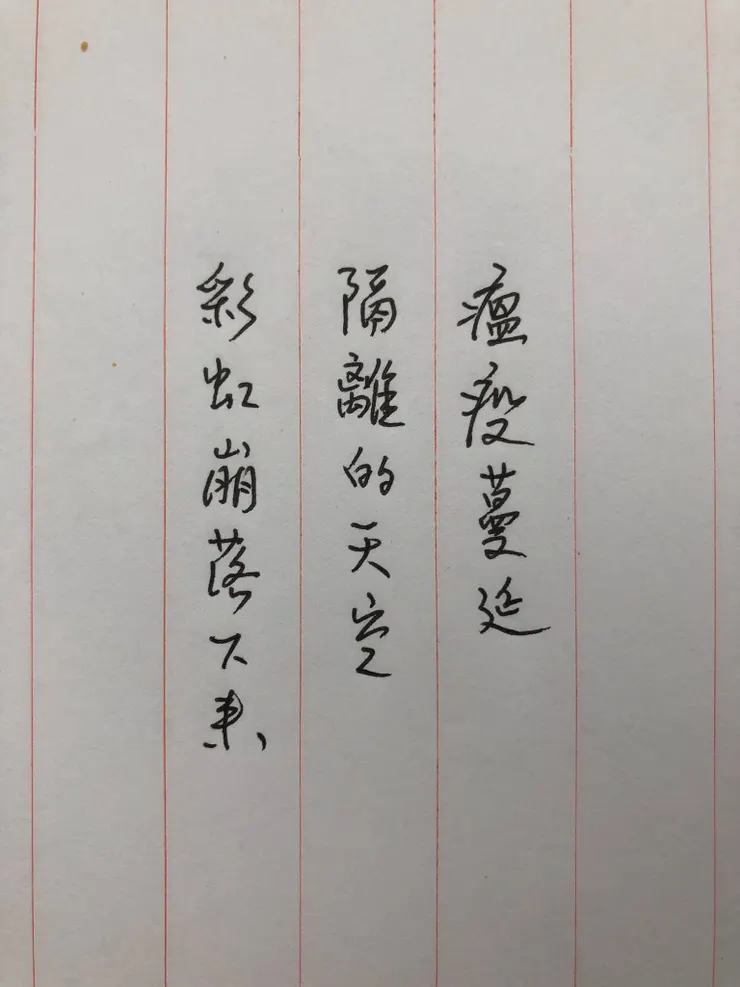 瘟疫蔓延
隔離的天空
彩虹崩落下来